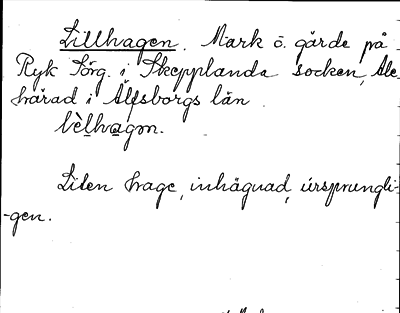 Lillhagen. Mark o. gärde på
Ryk Sörg. i Skepplanda socken, Ale
härad i Älfsborgs län.
lèlhagən.
Liten hage, inhägnad, ursprungli-
-gen.